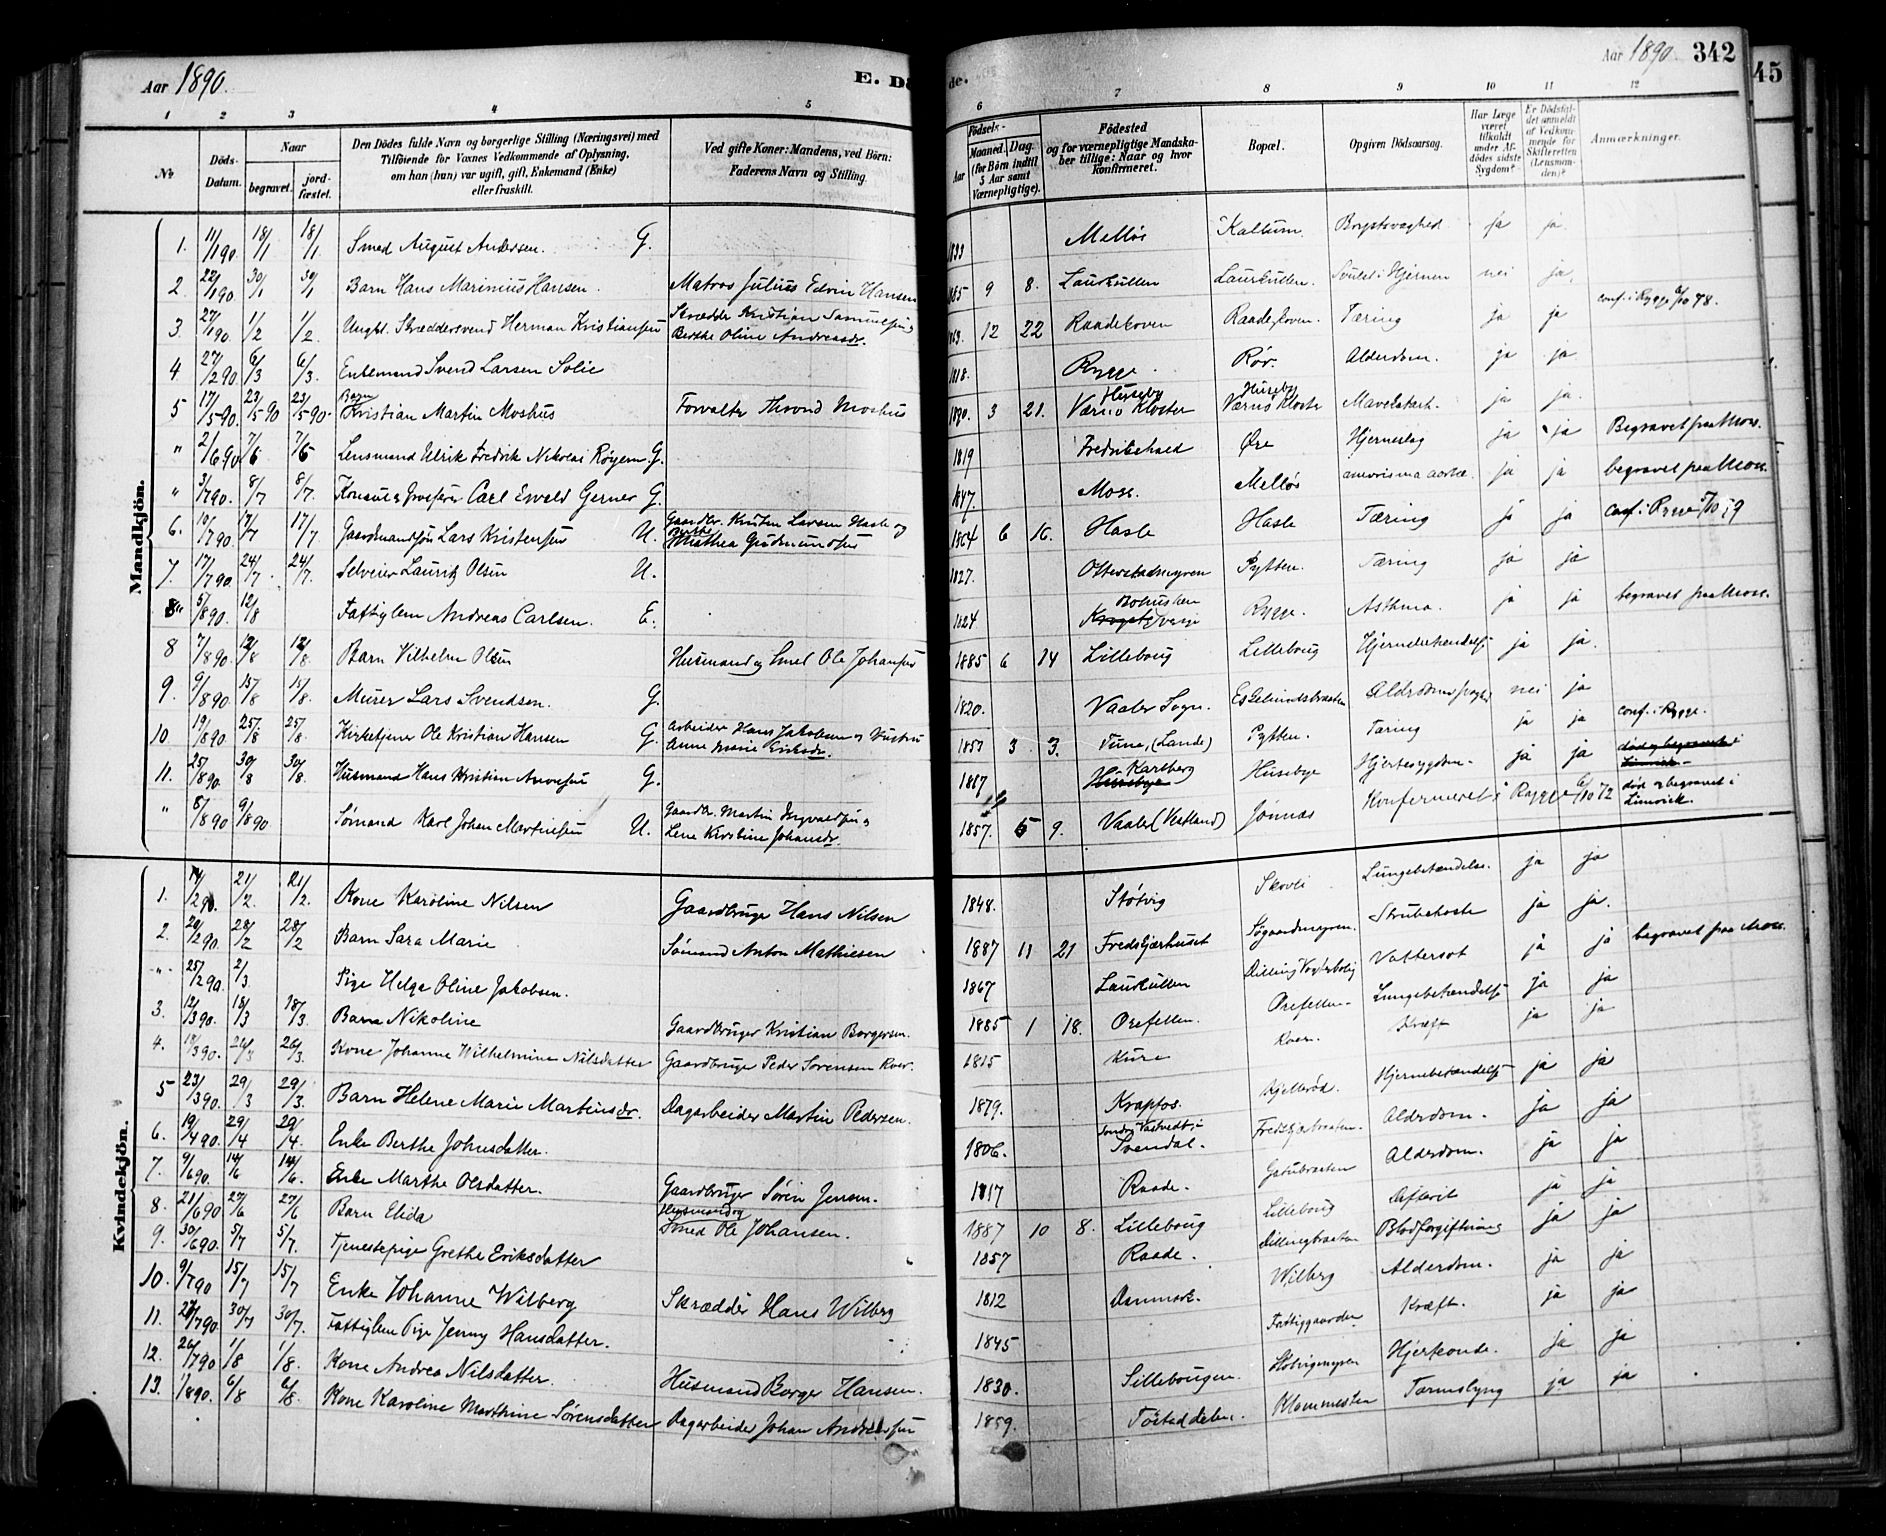 Aar 1890.
E. Dø
de.
Aar 1890
342
45
1 2 3 4 5 6 7 8 9 10 11 12
No
Døds-Datum.
Naar
begravet.
jord-fæstet.
Den Dødes fulde Navn og borgerlige Stilling (Næringsvei) med
Tilføiende for Voxnes Vedkommende af Oplysning,
om han (hun) var ugift, gift, Enkemand (Enke)
eller fraskilt.
Ved gifte Koner: Mandens, ved Børn:
Faderens Navn og Stilling.
Fødsels-
Aar
Maaned. Dag.
(for Børn indtil
5 Aar samt
Værnepligtige).
Fødested
og for værnepligtige Mandska-
ber tillige: Naar og hvor
konfirmeret.
Bopæl.
Opgiven Dødsaarsag.
Har Læge
været
tilkaldt
under Af-
dødes sidste
Sygdom?
Er Dødsfal-
det anmeldt
af Vedkom-
mende for
Skifteretten
(Lensman-
den)?
Anmærkninger.
Mandkjøn.
1. 11/1 90. 18/1 18/1 Smed August Andersen. G. 1833 Melløs Kallum Brystsvaghed ja ja.
2. 22/1 90. 30/1 30/1 Barn Hans Marinius Hansen. Matros Julius Edvin Hansen 1885 9 8. Laurkullen Laurkullen. Svulst i Hjernen nei ja
3. 27/1 90. 1/2 1/2 Ungk. Skræddersvend Herman Kristiansen Skrædder Kristian Samuelsen & Berthe Oline Andreasdr. 12 22 Raadeskoven Raadeskoven. Tæring ja ja conf. i Rygge 6/10 78.
4. 27/2 90. 6/3 6/3. Enkemand Svend Larsen Solie 1818. Rygge. Rør. Alderdom. ja ja
5 17/5 90. 23/5 90 23/5 90. Barn Kristian Martin Moshus Forvalter Thrond Moshus 1890. 3 21. Huseby Værne Kloster Huseby Værne Kloster Mavekatarh. ja ja.
" 2/6 90 7/6 7/6 Lensmand Ulrik Fredrik Nikolai Røyem. G. 1819 Fredrikshald Øre Hjerneslag ja ja Begravet paa Moss.
" 3/7 90. 8/7 8/7. Konsul & Grosserer Carl Ewald Gerner G. 1847. Moss. Melløs aneurisma aortæ. ja ja begravet paa Moss.
6. 10/7 90. 17/7 17/7 Gaardmandsøn Lars Kristensen U. Gaardbr. Kristen Larsen Hasle og Berthe Mathea Gudmundsen 1864 6 16. Hasle Hasle Tæring ja ja conf. i Rygge 5/10 79
7. 17/7 90. 24/7. 24/7. Selveier Lauritz Olsen U. 1827. Ottersladmyren Pytten. Tæring ja ja
5/8 90. 12/8 Fattiglem Andreas Carlsen. E. 1824 Bohuslen Rygge. Asthma. ja ja begravet paa Moss.
8 7/8 90. 12/8 12/8. Barn Vilhelm Olsen Husmand og Smed Ole Johansen 1885 6 14 Lilleboug Lilleboug Hjernebetændelse ja ja.
9. 9/8 90. 15/8 15/8. Murer Lars Svendsen. G. 1820. Vaaler Sogn. Alderdom nei ja
10. 19/8 90. 25/8 25/8. Kirketjener Ole Kristian Hansen G. arbeider Hans Jakobsen og Hustru Anne Marie Eriksdr. 1857 3. 3. Tune, (Lande) Pytten. Tæring ja ja conf. i Rygge.
11. 25/8 90. 30/8 30/8. Husmand Hans Kristian Arnesen G. 1867 Karlberg Husebye Husebye Hjertesygdom. ja ja død og begravet i Limvick.
" 8/8 90. 9/8 90 Sømand Karl Johan Martinsen U. Gaardbr. Martin Ingvaldsen & Lene Kirstine Johansdr. 1857. 5 9. Vaaler (Vestland) Jonnæs Konfermeret i Rygge 6/10 72 død og begravet i Limvick.
Kvindekjøn.
1. 14/2 90. 21/2. 21/2. Kone Karoline Nilsen Gaardbruger Hans Nilsen 1848. Støtvig Skovli Lungebetændelse. ja ja
2. 20/2 90. 28/2 28/2 Barn Sara Marie Sømand Anton Mathiesen 1887 11 21 Fredskjærhuset Søgaardmyren. Strubehoste ja ja.
" 25/2 90. 2/3. Pige Helga Oline Jakobsen. 1867 Laurkullen Dilling Vogterbolig Vattersot ja ja begravet paa Moss.
3. 12/3 90. 18/3 18/3. Barn Nikoline Gaardbruger Kristian Borgersen. 1885 1 18. Orefellen. Orefellen. Lungebetændelse ja ja
4. 18/3 90. 26/3 26/3. Kone Johanne Wilhelmine Nilsdatter Gaardbruger Peder Sørensen Roer. 1815 Kure Roer. Kræft ja ja
5 23/3 90. 29/3 29/3. Barn Helene Marie Martinsdr. Dagarbeider Martin Pedersen. 1879. Krapfos. Kjellerød. Hjernebetændelse ja ja
6. 19/4 90. 29/4 29/4. Enke Berthe Johnsdatter. 1806. Svendal. Alderdom. ja ja
7. 9/6 90. 14/6 14/6. Enke Marthe Olsdatter. Gaardbruger Sørin Jensen. 1817 Raade. Gatubraaten Alderdom. ja ja
8. 21/6 90 27/6 27/6 Barn Elida Husmand og Smed Ole Johansen. 1887 10 8. Lilleboug Lilleboug ja ja
9. 30/6 90. 5/7 5/7. Tjenestepige Grethe Eriksdatter 1857 Raade. Dillingbraaten Blodforgiftning ja ja
10. 9/7 90 15/7 15/7 Enke Johanne Wilberg Skrædder Hans Wilberg 1812 Danmark. Wilberg Alderdom. ja ja
11. 27/7 90. 30/7 30/7. Fattiglem Pige Jenny Hansdatter. 1845 Fattiggaarden Kræft. ja ja
12. 26/7 90 1/8 1/8. Kone Andrea Nilsdatter. Husmand Borger Hansen. 1830. Lilleboug Støtvigmyren Hjerteonde. ja ja
13. 1/8 90. 6/8 6/8. Kone Karoline Marthine Sørensdatter Dagarbeider Johan Andersen 1859. Klommesten Tarmslyng ja ja